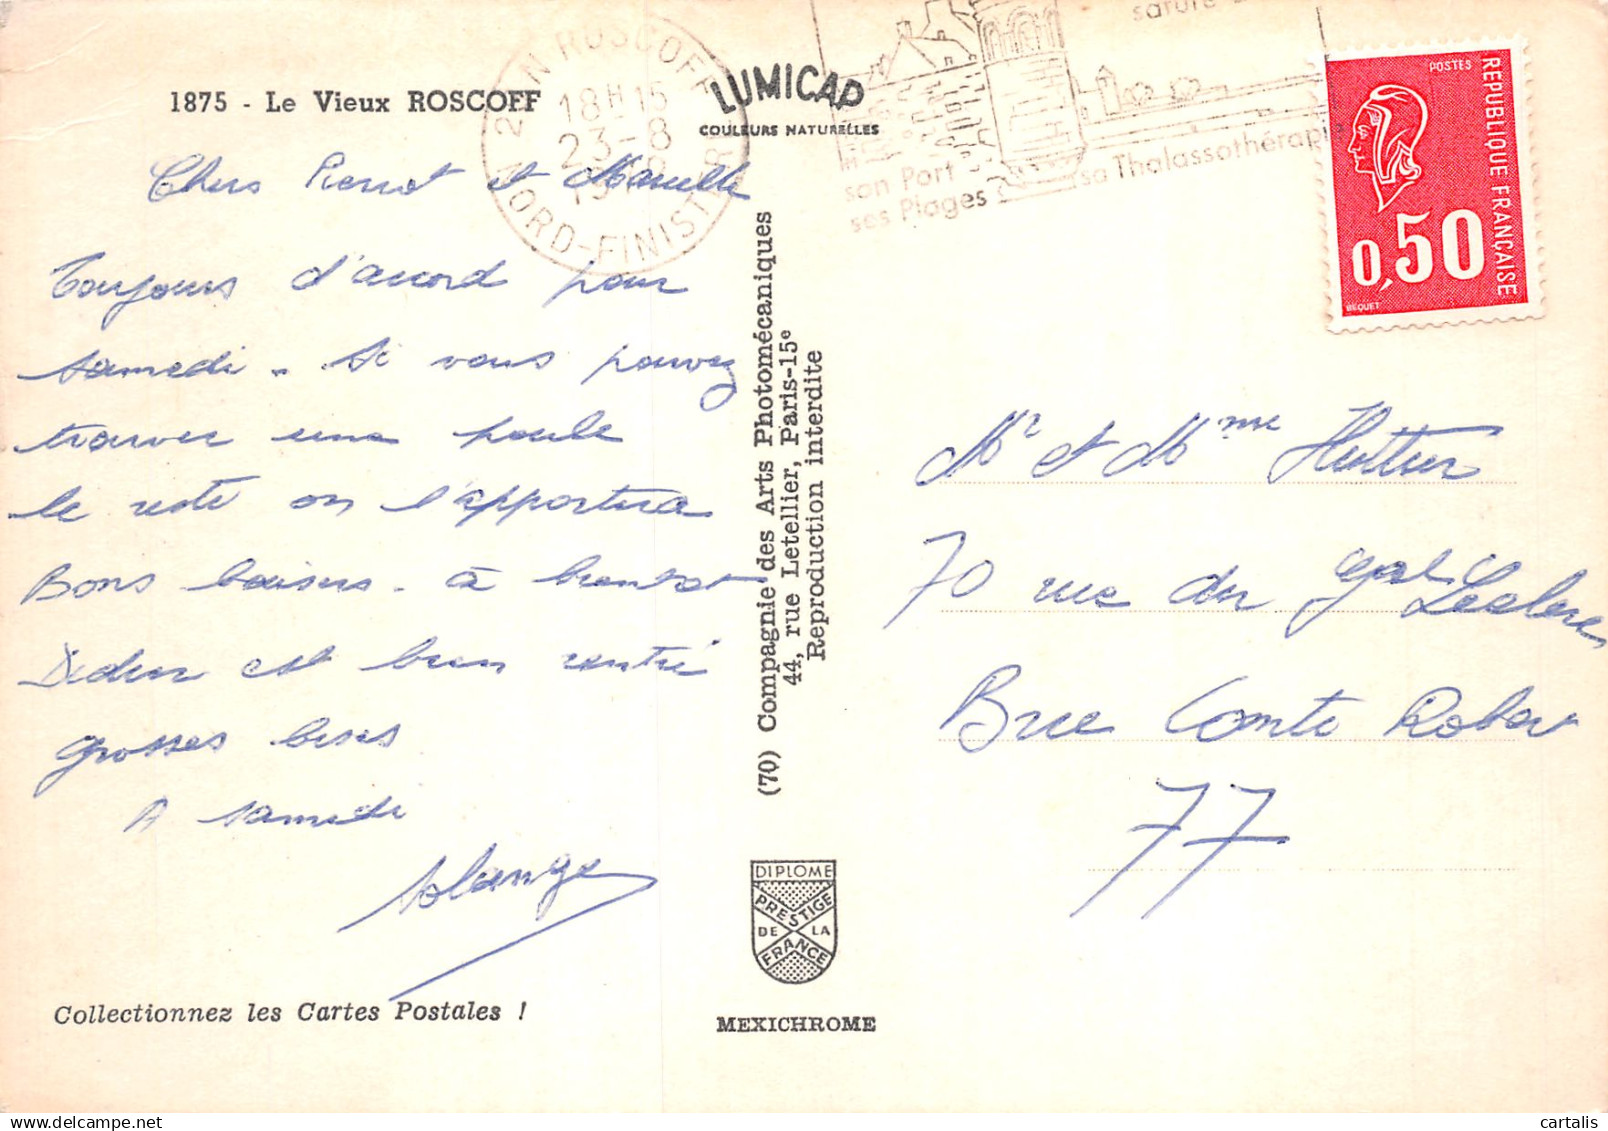 1875 - Le Vieux ROSCOFF
29 N ROSCOFF
18H15
23-8
NORD-FINISTERE
LUMICAP
COULEURS NATURELLES
son Port
ses Plages
sa Thalassothérapie
POSTES
REPUBLIQUE FRANÇAISE
0,50
BEQUET
Chers Pierrot et Marcelle
Toujours d'accord pour
samedi - Si vous pouvez
trouver une poule
le reste on l'apportera
Bons baisers - à bientot
Didier est bien rentré
grosses bises
A samedi
Solange
Collectionnez les Cartes Postales !
(70) Compagnie des Arts Photomécaniques
44, rue Letellier, Paris-15e
Reproduction interdite
DIPLOME
PRESTIGE
DE LA
FRANCE
MEXICHROME
Mr et Mme Hutter
70 rue du gal Leclerc
Brie Comte Robert
77
© cartalis